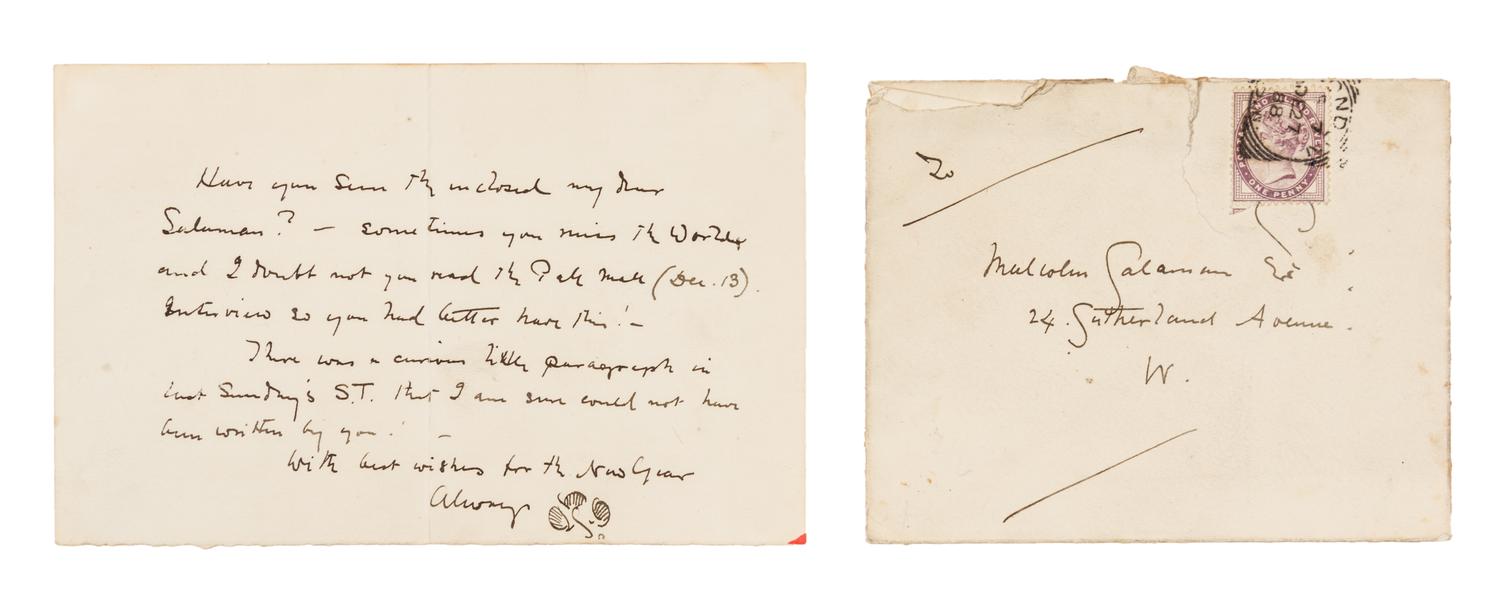 Have you seen the inclosed my dear
Salaman? — sometimes you miss the World
and I doubt not you read the Pall Mall (Dec. 13).
Interview so you had better have this! —
There was a curious little paragraph in
last Sunday's S.T. that I am sure could not have
been written by you! —
With best wishes for the New Year
Always
To
Malcolm Salaman Esq
24. Sutherland Avenue.
W.
ONE PENNY
DE 27
88